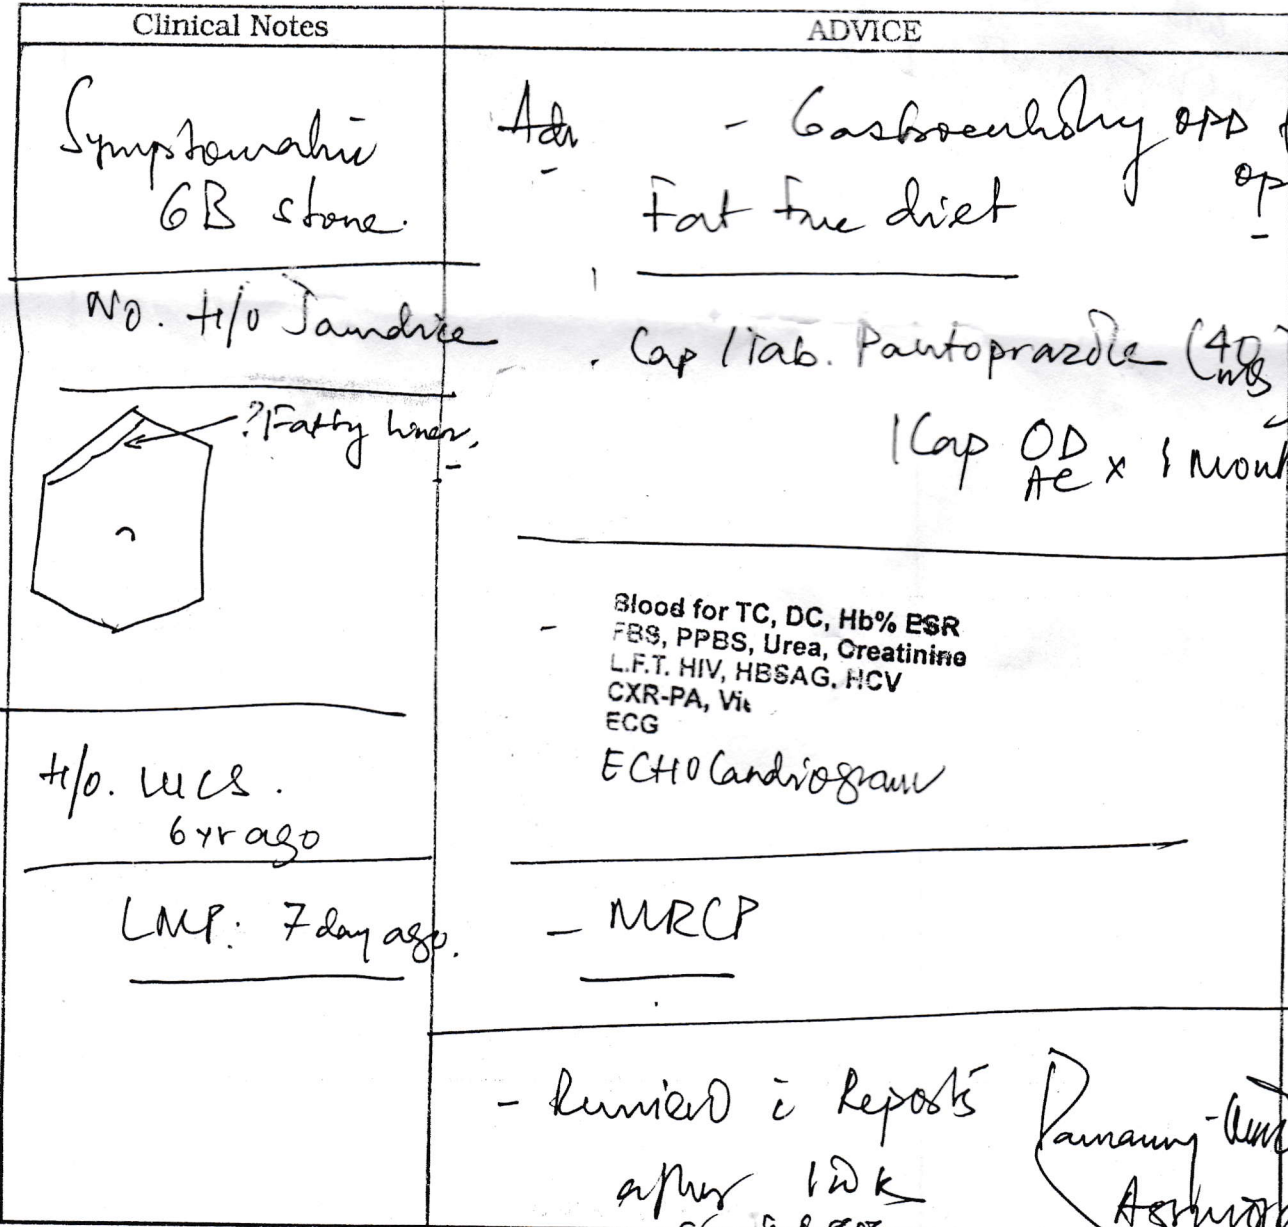 Clinical Notes
ADVICE
Symptomatic
GB stone.
No. H/o Jaundice
?Fatty liver,
H/o. LUCS.
6 yr ago
LMP: 7 day ago.
Adv - Gastroenterology OPD
op
Fat free diet
Cap / Tab. Pantoprazole (40 mg
1 Cap OD AC x 1 Mont
- Blood for TC, DC, Hb% ESR
FBS, PPBS, Urea, Creatinine
L.F.T. HIV, HBSAG, HCV
CXR-PA, Vit
ECG
ECHO Cardiogram
- MRCP
- Review c Reports
after 1 wk